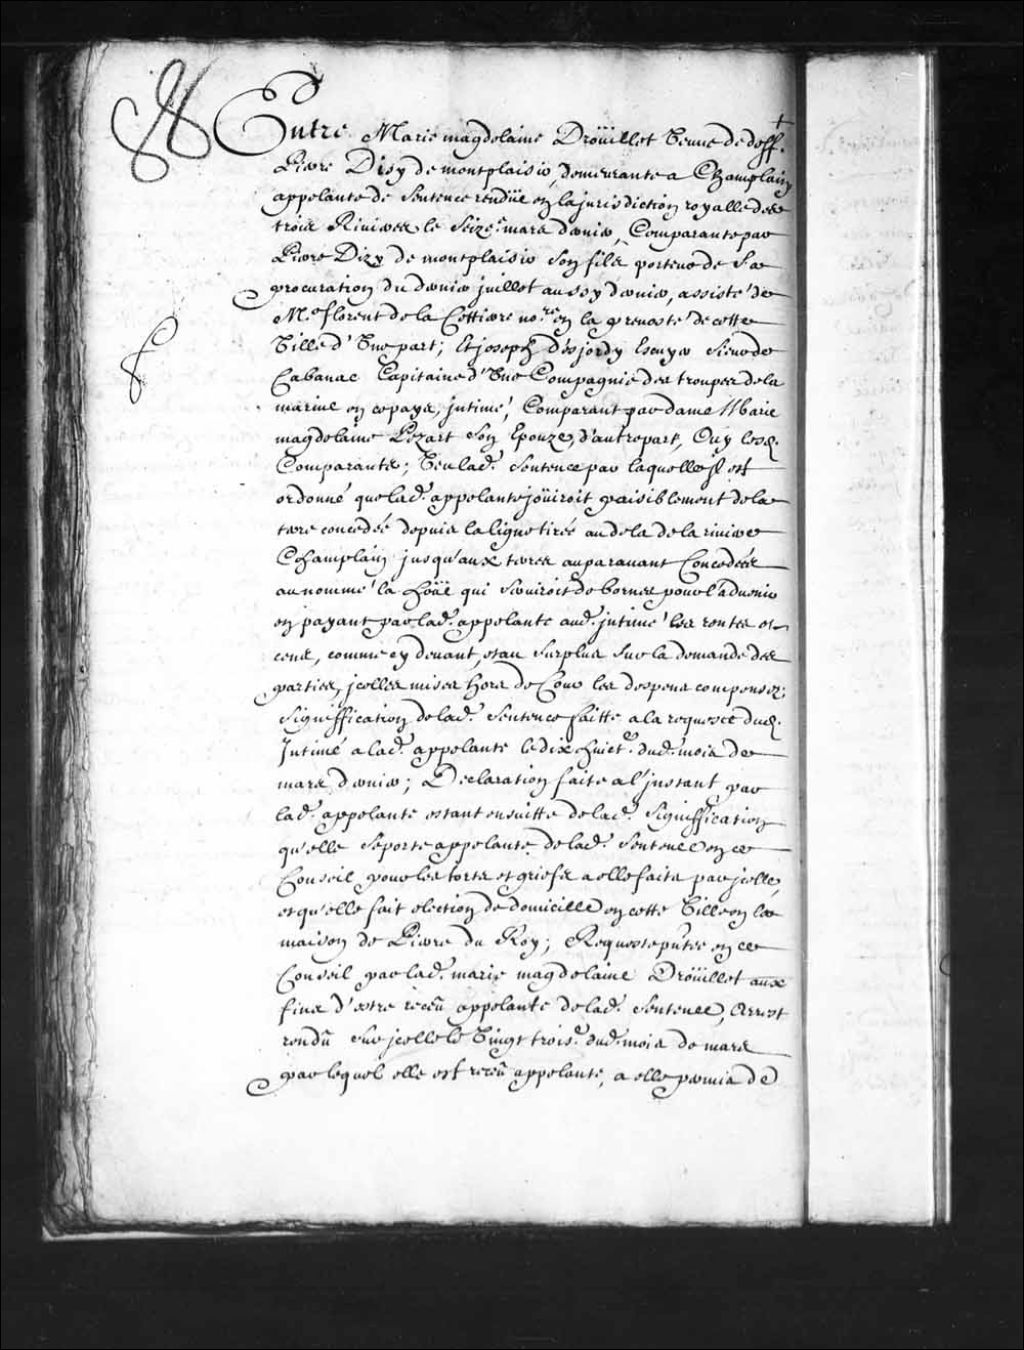 Entre Marie magdelaine Droüillet Veuve de deff.
Pierre Disy de montplaisir, demeurante a Champlain
appelante de Sentence rendüe en la jurisdiction royalle des
trois Rivieres le Seize.e mars dernier, Comparante par
Pierre Dizy de montplaisir son fils porteur de sa
procuration du dernier juillet aussy dernier, assisté de
M.e florent de la Cettiere no.re en la prevosté de cette
Ville d'Une part; Et joseph desjordy Escuyer Sieur de
Cabanac Capitaine d'Une Compagnie des troupes de la
marine en ce pays, jntimé, Comparant par dame Marie
magdelaine Pezart Son Epouze, d'autre part, Ouy lesd.
Comparants; Veu lad. Sentence par laquelle jl est
ordonné que lad. appelante joüiroit paisiblement de la
terre concedée depuis la ligne tirée au dela de la riviere
Champlain jusqu'aux terres auparavant Concedées
au nommé la hoüe qui serviroit de bornes pour l'advenir
en payant par lad. appelante aud. jntimé les rentes et
cens, comme cy devant, et au surplus sur la demande des
parties, jcelles mises hors de Cour les despens compensez;
Signiffication de lad. Sentence faitte a la requeste dud.
Jntimé a lad. appelante le dix huict.e dud. mois de
mars dernier; Declaration faite a l'jnstant par
lad. appelante estant ensuitte de lad. Signiffication
qu'elle se porte appelante de lad. Sentence en ce
Conseil pour les torts et griefs a elle faits par jcelle,
et qu'elle fait election de domicille en cette Ville en la
maison de Pierre du Roy; Requeste pñtée en ce
Conseil par lad. marie magdelaine Droüillet aux
fins d'estre receüe appelante de lad. Sentence, Arrest
rendu sur jcelle le Vingt trois.e dud. mois de mars
par lequel elle est receüe appelante, a elle permis de